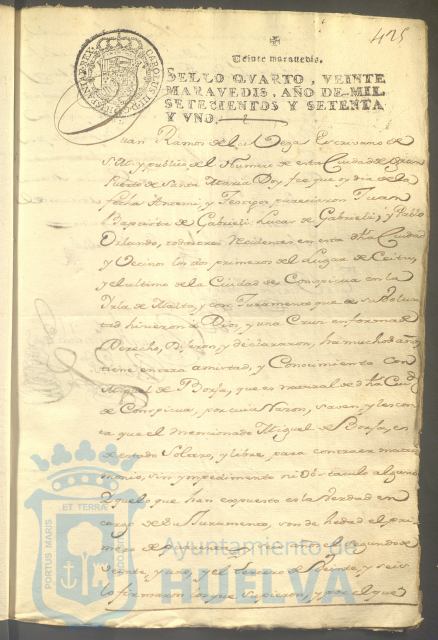 425
Veinte maravedis.
SELLO QVARTO, VEINTE
MARAVEDIS, AÑO DE MIL
SETECIENTOS Y SETENTA
Y VNO.
Juan Ramos de la Vega Escrivano de
S.M. y publico del Numero de esta Ciudad de gran
Puerto de Santa Maria Doy fee que oy dia de la
fecha Antemi, y Testigos parecieron Juan
Baptista de Gabrieli, Lucas de Gabrieli, y Pablo
Orlando, todos tres Recidentes en esta dha Ciudad
y Vecinos los dos primeros del Lugar de
y el ultimo de la Ciudad de Conspicua en la
Isla de Malta, y con Juramento que de su Volun
tad hicieron a Dios, y una Cruz en forma de
Derecho, Dijeron, y declararon, ha muchos años
tiene entera amistad, y Conocimiento con
Miguel de Borja, que es natural de dha Ciud
de Conspicua, por cuia Razon, saven, y les cons
ta que el mencionado Miguel de Borja, es
de estado Soltero, y libre, para contraer matri
monio, sin ympedimento ni Obstaculo alguno
Aquello que han expuesto es la Verdad en
cargo de su Juramento, son de hedad el pri
mero de el segundo de
veinte y y el tercero de Veinte, y seis
lo firmaron los que supieron, y por el que
CAROLUS III D.G. HISPANIAR. REX
PORTUS MARIS
ET TERRÆ
CUSTODIA
Ayuntamiento de
HUELVA